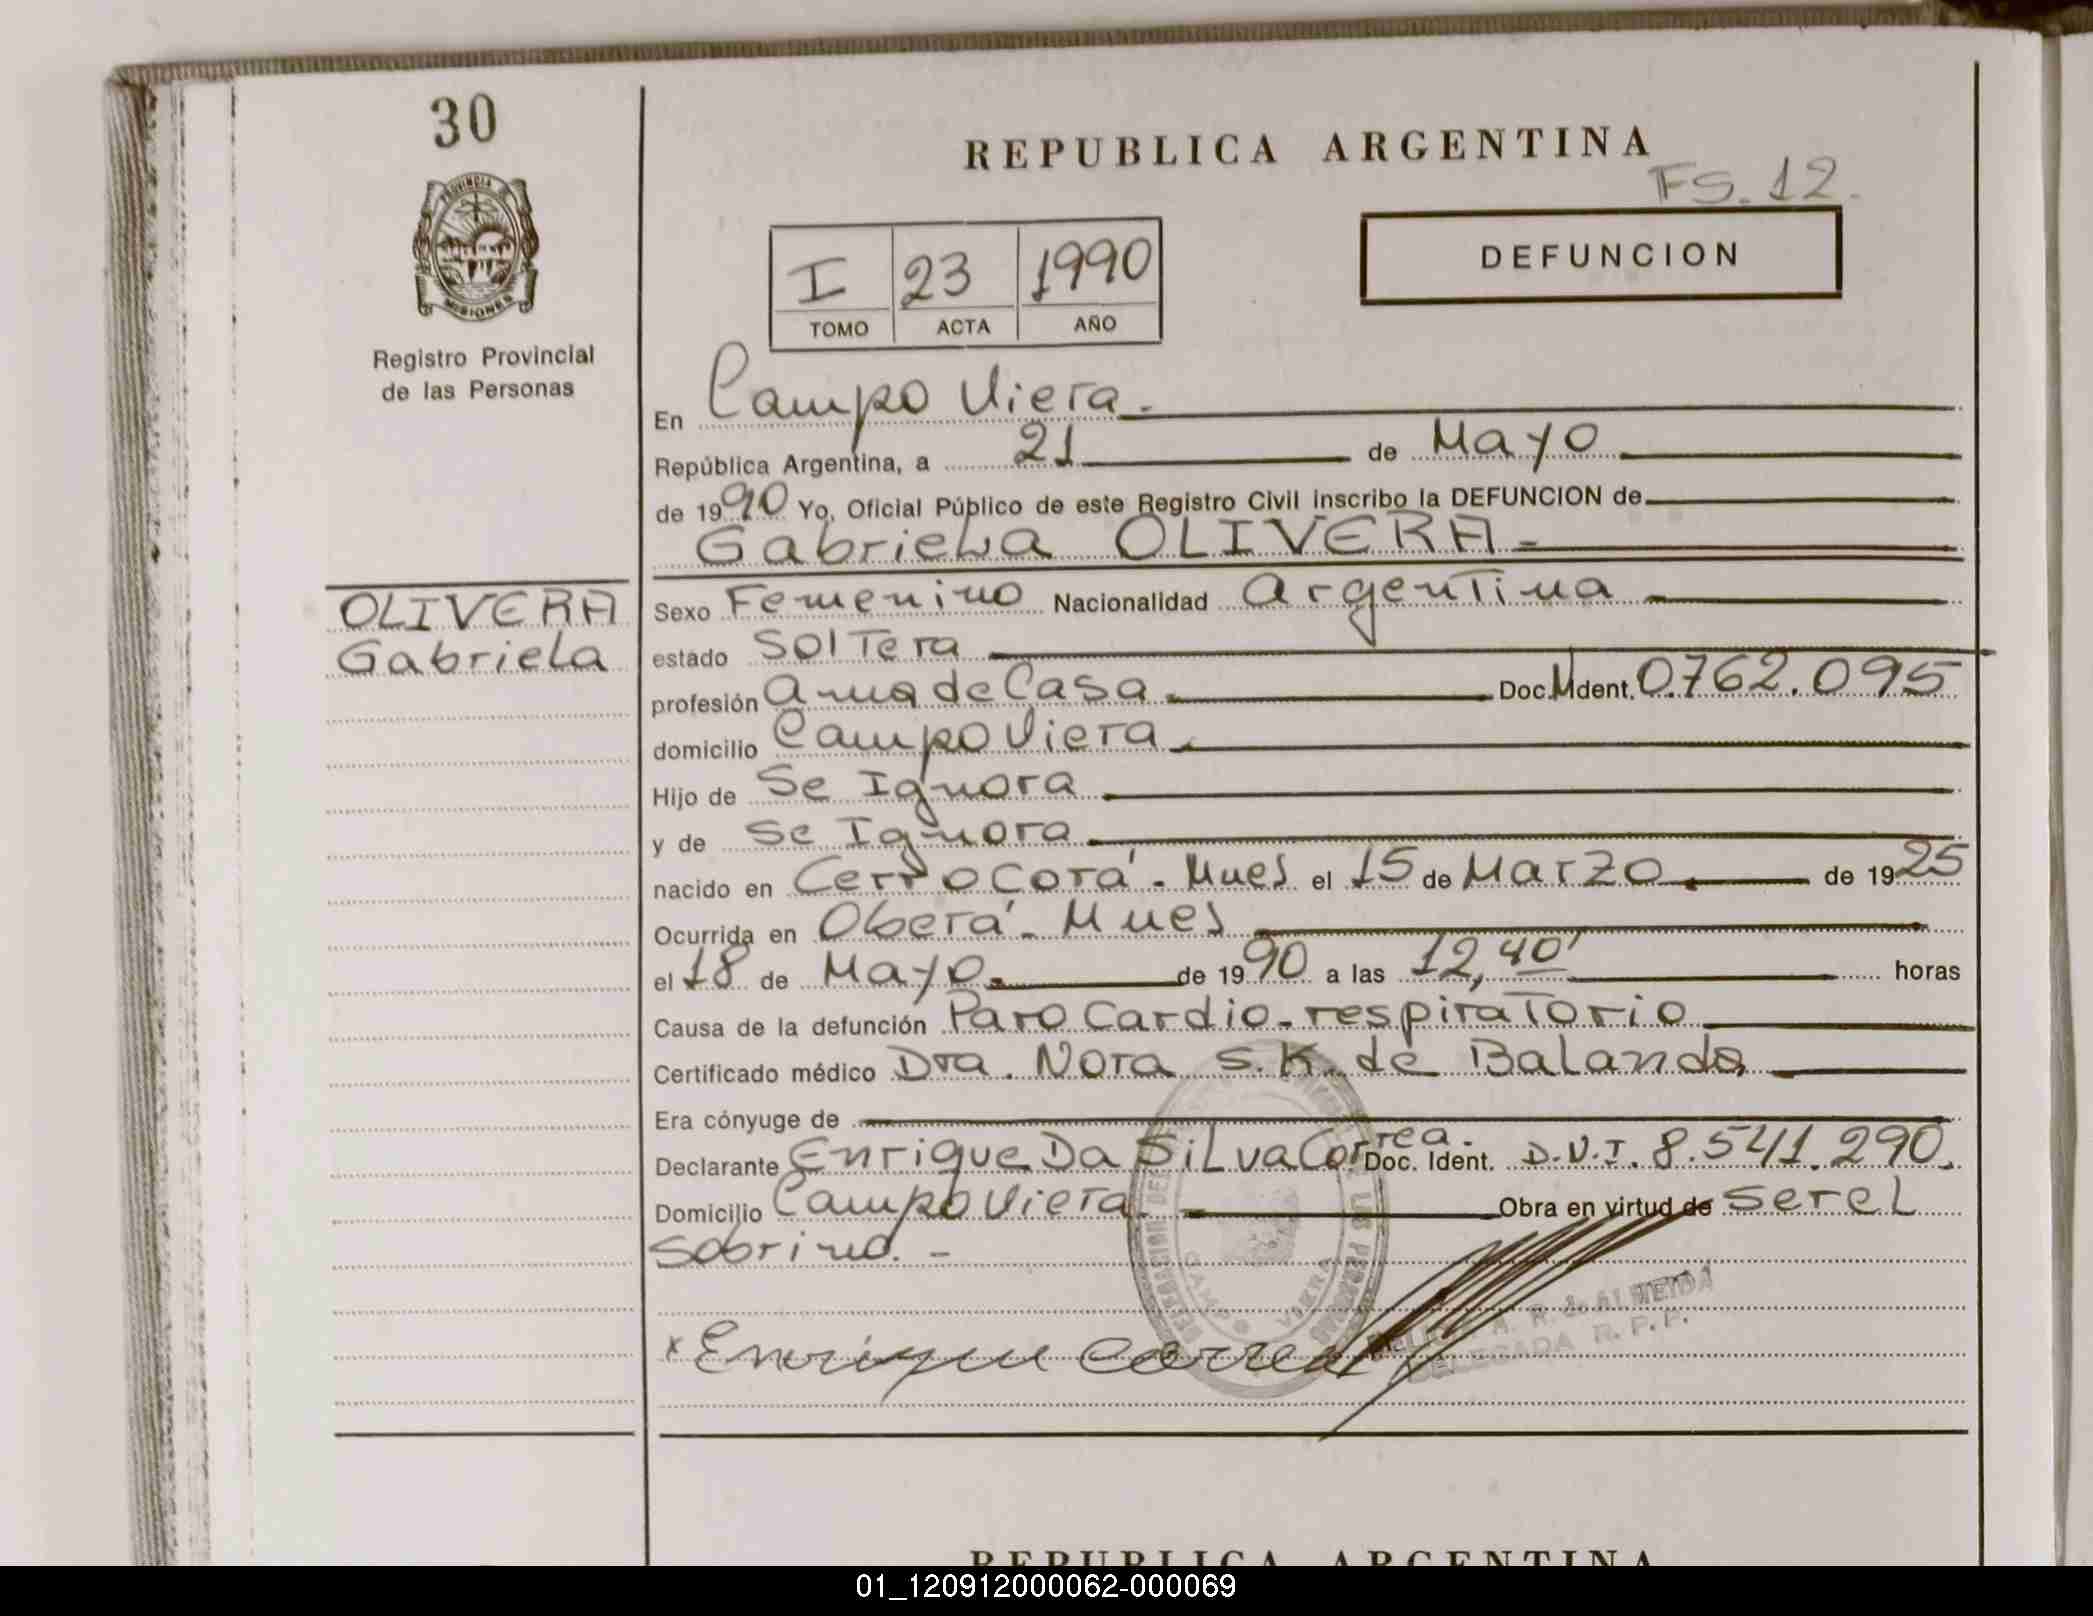 30
REPUBLICA ARGENTINA
FS. 12.
PROVINCIA DE
MISIONES
I 23 1990
TOMO ACTA AÑO
DEFUNCION
Registro Provincial
de las Personas
En Campo Viera.
República Argentina, a 21 de Mayo
de 1990 Yo, Oficial Público de este Registro Civil inscribo la DEFUNCION de
Gabriela OLIVERA.
OLIVERA
Gabriela
Sexo Femenino Nacionalidad Argentina
estado Soltera
profesión ama de Casa Doc. Ident. 0.762.095
domicilio Campo Viera.
Hijo de Se Ignora
y de Se Ignora
nacido en Cerro Corá. Mnes el 15 de Marzo de 1925
Ocurrida en Oberá. Mnes
el 18 de Mayo. de 1990 a las 12,40' horas
Causa de la defunción Paro Cardio-respiratorio
Certificado médico Dra. Nora S.K. de Balanda
Era cónyuge de
Declarante Enrique Da Silva Correa. Doc. Ident. D.N.I. 8.541.290.
Domicilio Campo Viera. Obra en virtud de ser el
Sobrino. -
CAMPO VIERA
x Enrique Correa
R. de ALMEIDA
DELEGADA R. P. P.
REPUBLICA ARGENTINA
01_120912000062-000069